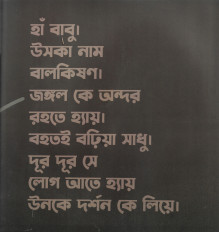 হাঁ বাবু।
উসকা নাম
বালকিষণ।
জঙ্গল কে অন্দর
রহতে হ্যায়।
বহতই বঢ়িয়া সাধু।
দূর দূর সে
লোগ আতে হ্যায়
উনকে দর্শন কে লিয়ে।